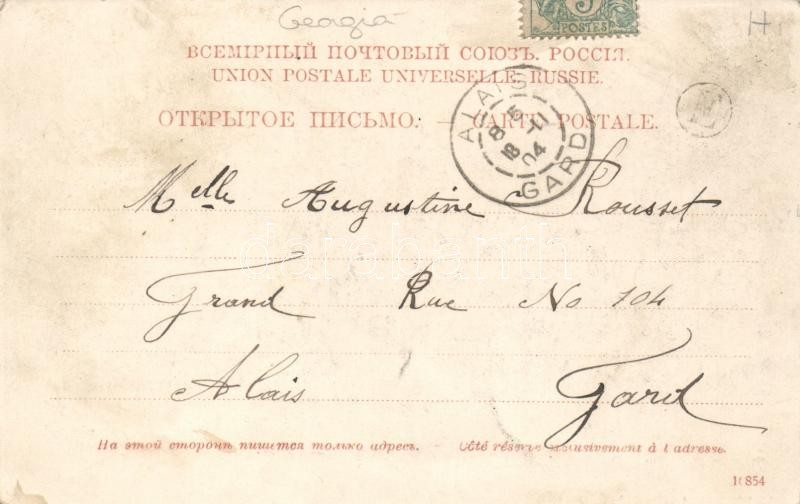 Georgia
H
5
POSTES
ВСЕМІРНЫЙ ПОЧТОВЫЙ СОЮЗЪ. РОССІЯ.
UNION POSTALE UNIVERSELLE. RUSSIE.
ОТКРЫТОЕ ПИСЬМО. — CARTE POSTALE.
ALAIS
GARD
18 -11
04
Melle Augustine Rousset
Grand Rue No 104
Alais Gard
На этой сторонѣ пишется только адресъ. — Côté réservé exclusivement à l'adresse.
10854